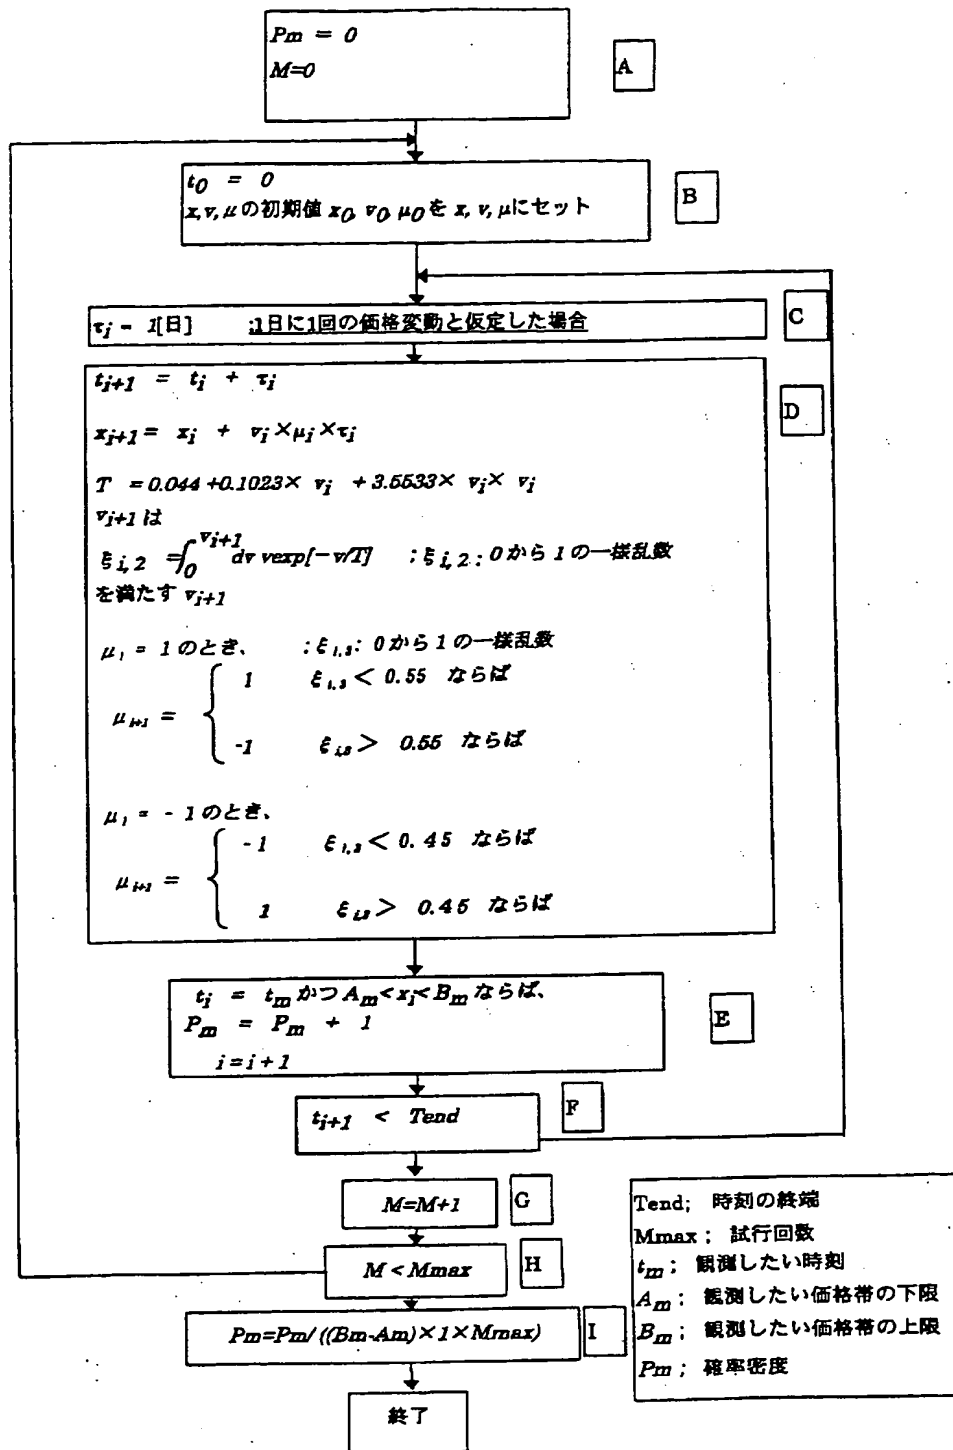 Pm = 0
M=0
A
t0 = 0
x,v,μの初期値 x0, v0, μ0を x, v, μにセット
B
τi = 1[日] ;1日に1回の価格変動と仮定した場合
C
D
ti+1 = ti + τi
xi+1= xi + vi×μi×τi
T = 0.044+0.1023× vi +3.5533× vi× vi
vi+1は
ξi,2 =∫0^vi+1 dv vexp[-v/T] ;ξi,2: 0から1の一様乱数
を満たす vi+1
μi = 1のとき、 ;ξi,3: 0から1の一様乱数
1 ξi,3< 0.55 ならば
μi+1 = {
-1 ξi,3> 0.55 ならば
μi = - 1のとき、
-1 ξi,3< 0.45 ならば
μi+1 = {
1 ξi,3> 0.45 ならば
ti = tmかつAm<xi<Bmならば、
Pm = Pm + 1
i=i+1
E
ti+1 < Tend
F
M=M+1
G
M<Mmax
H
Pm=Pm/((Bm-Am)×1×Mmax)
I
終了
Tend; 時刻の終端
Mmax; 試行回数
tm; 観測したい時刻
Am; 観測したい価格帯の下限
Bm; 観測したい価格帯の上限
Pm; 確率密度